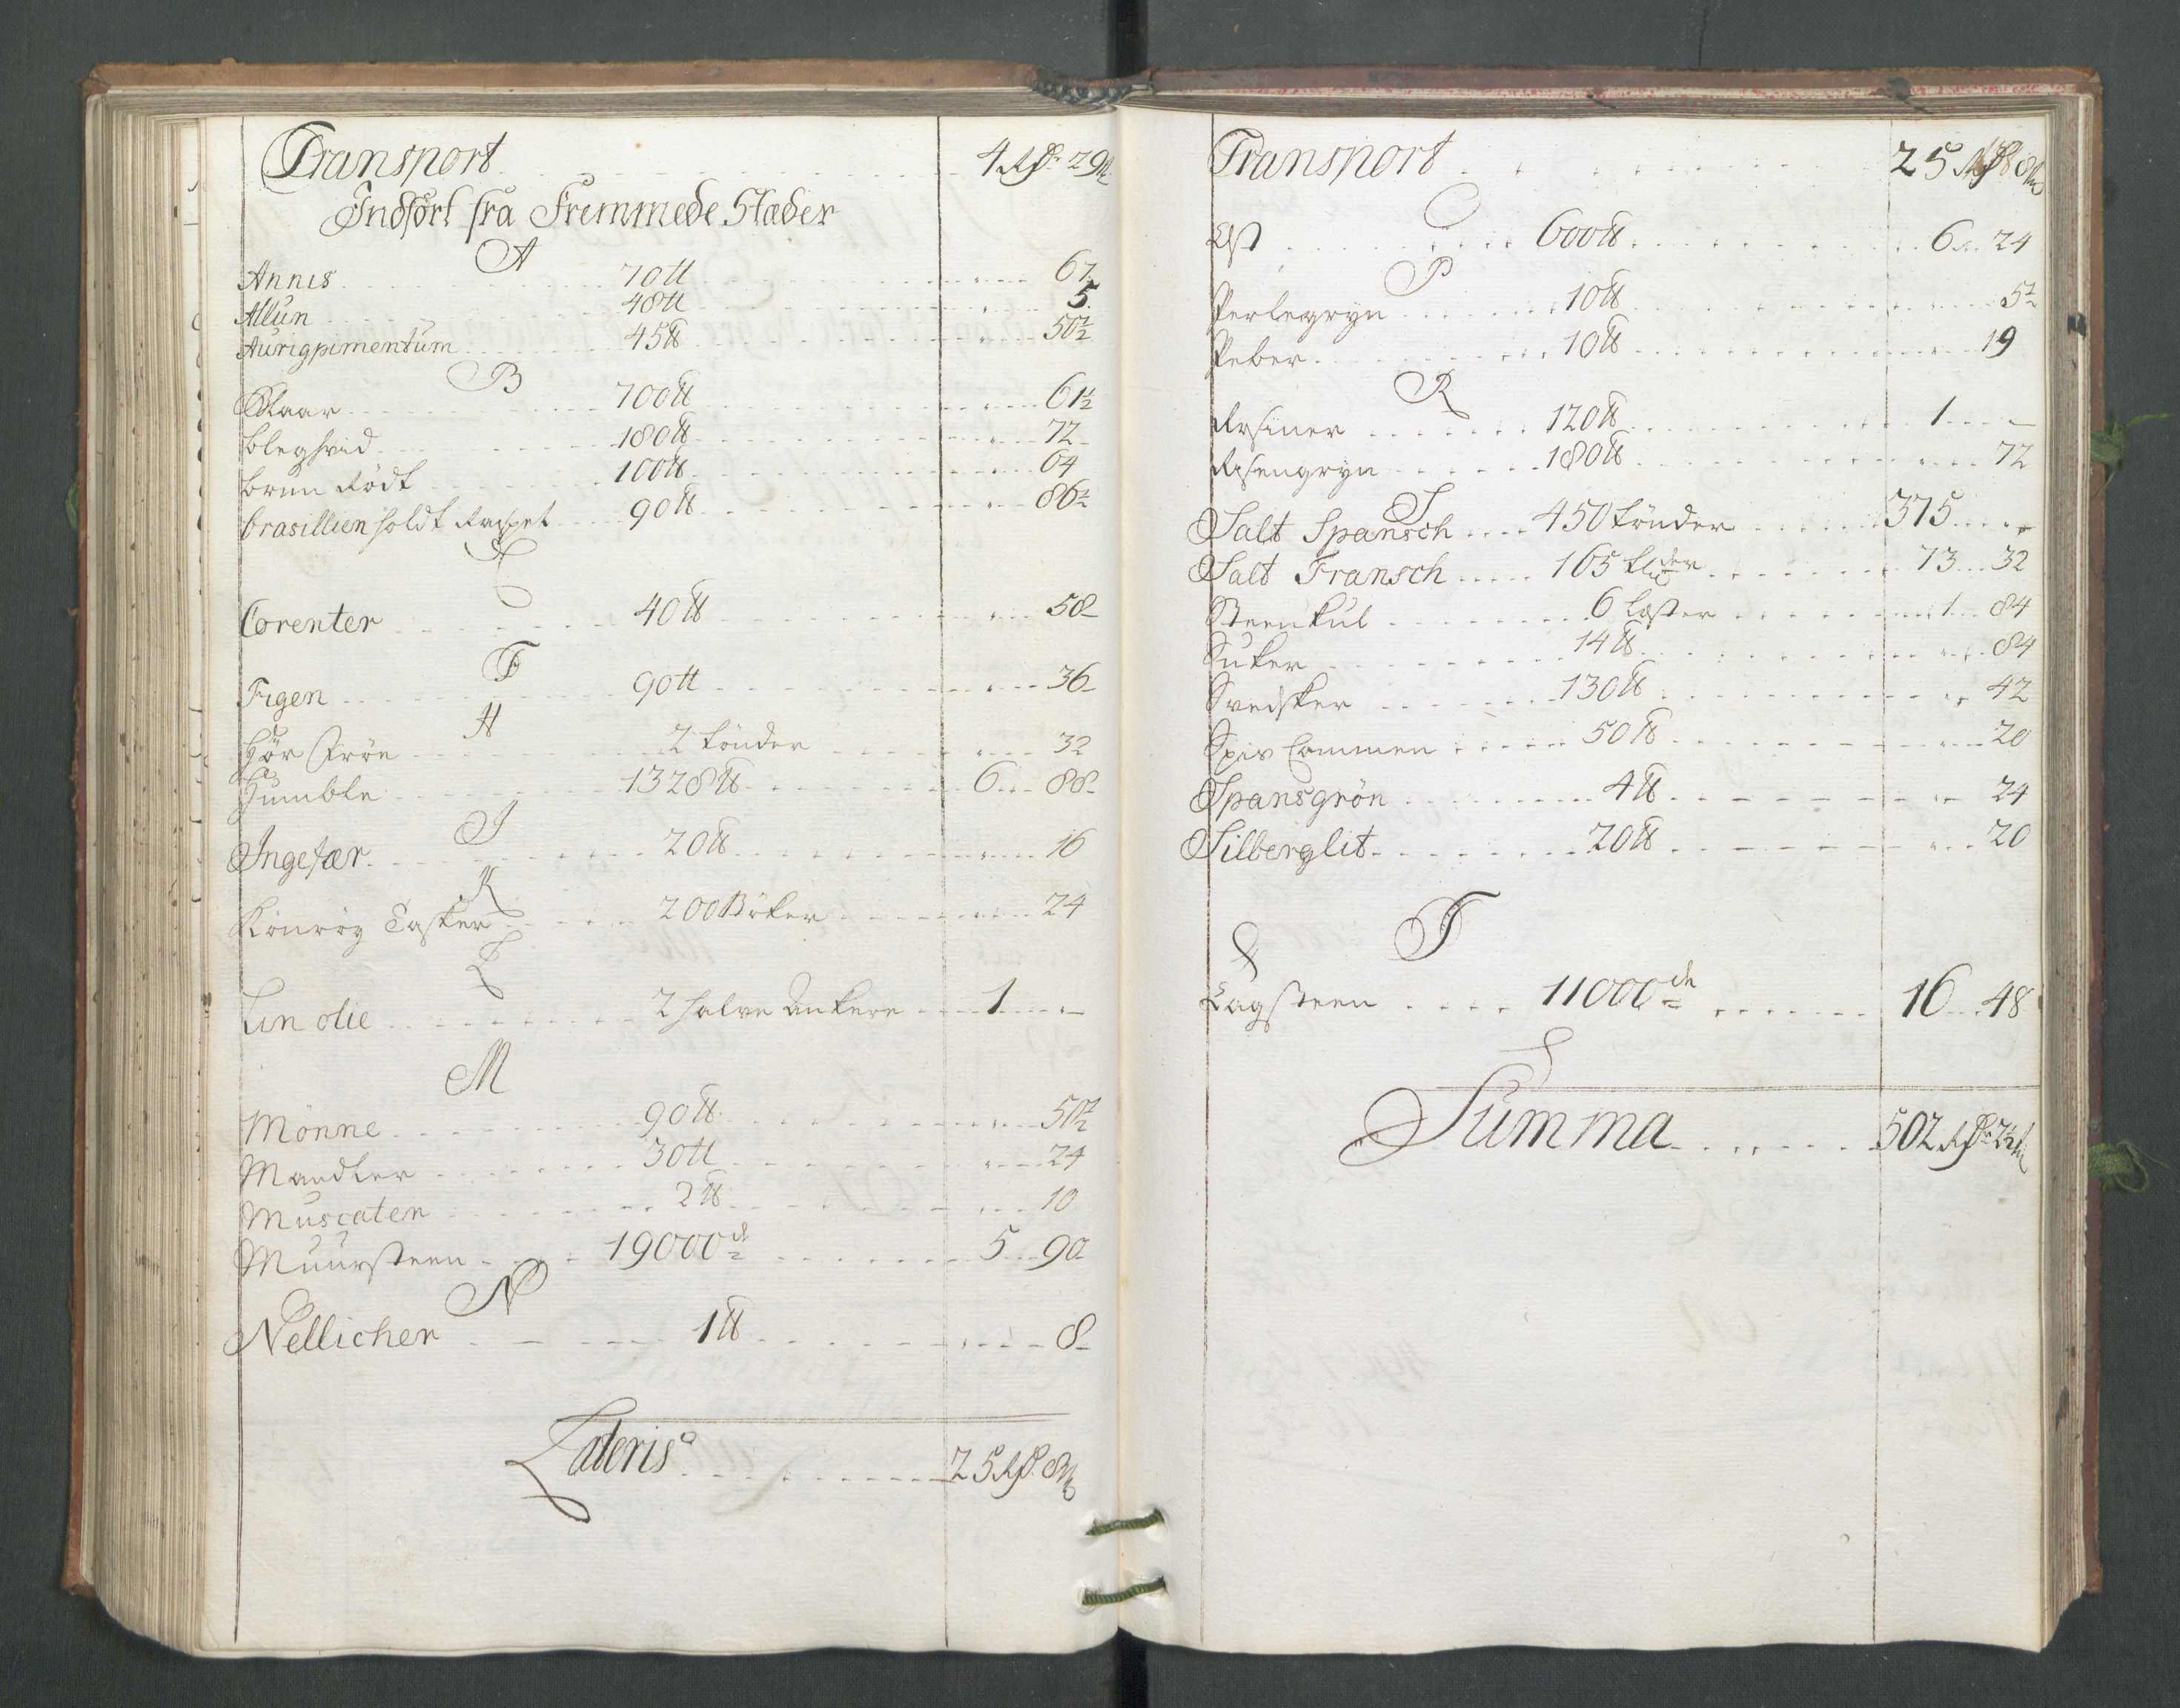 Transport 4 Rdr 29
Indført fra Fremmede Stæder
A
Annis 70 ℔ 67
Allun 48 ℔ 5
Aurigpimentum 45 ℔ 50½
B
Blaar 700 ℔ 61½
bleghvid 180 ℔ 72
brun Rödt 100 ℔ 64
brasillien holdt Raspet 90 ℔ 86½
C
Corenter 40 ℔ 58
F
Figen 90 ℔ 36
H
Hör Fröe 2 tönder 32
Humble 1328 ℔ 6 88
I
Ingefær 20 ℔ 16
K
Könrög Tasker 200 Böker 24
L
Lin olie 2 halve Ankere 1 -
M
Mönne 90 ℔ 50½
Mandler 30 ℔ 24
Muscater 2 ℔ 10
Muursteen 19000 5 90
N
Nellicher 1 ℔ 8
Lateris 25 Rdr 8
Transport 25 Rdr 8
O
Ost 600 ℔ 6 24
P
Perlegryn 10 ℔
Peber 10 ℔ 19
R
Rosiner 120 ℔ 1 -
Risengryn 180 ℔ 72
S
Salt Spansch 450 tönder 375 -
Salt Fransch 165 tdr 73 32
Steenkul 6 læster 1 84
Suker 14 ℔ 84
Svedsker 130 ℔ 42
Spis Commen 50 ℔ 20
Spansgrön 4 ℔ 24
Silberglit 20 ℔ 20
T
Tagsteen 11000 16 48
Summa 502 Rdr